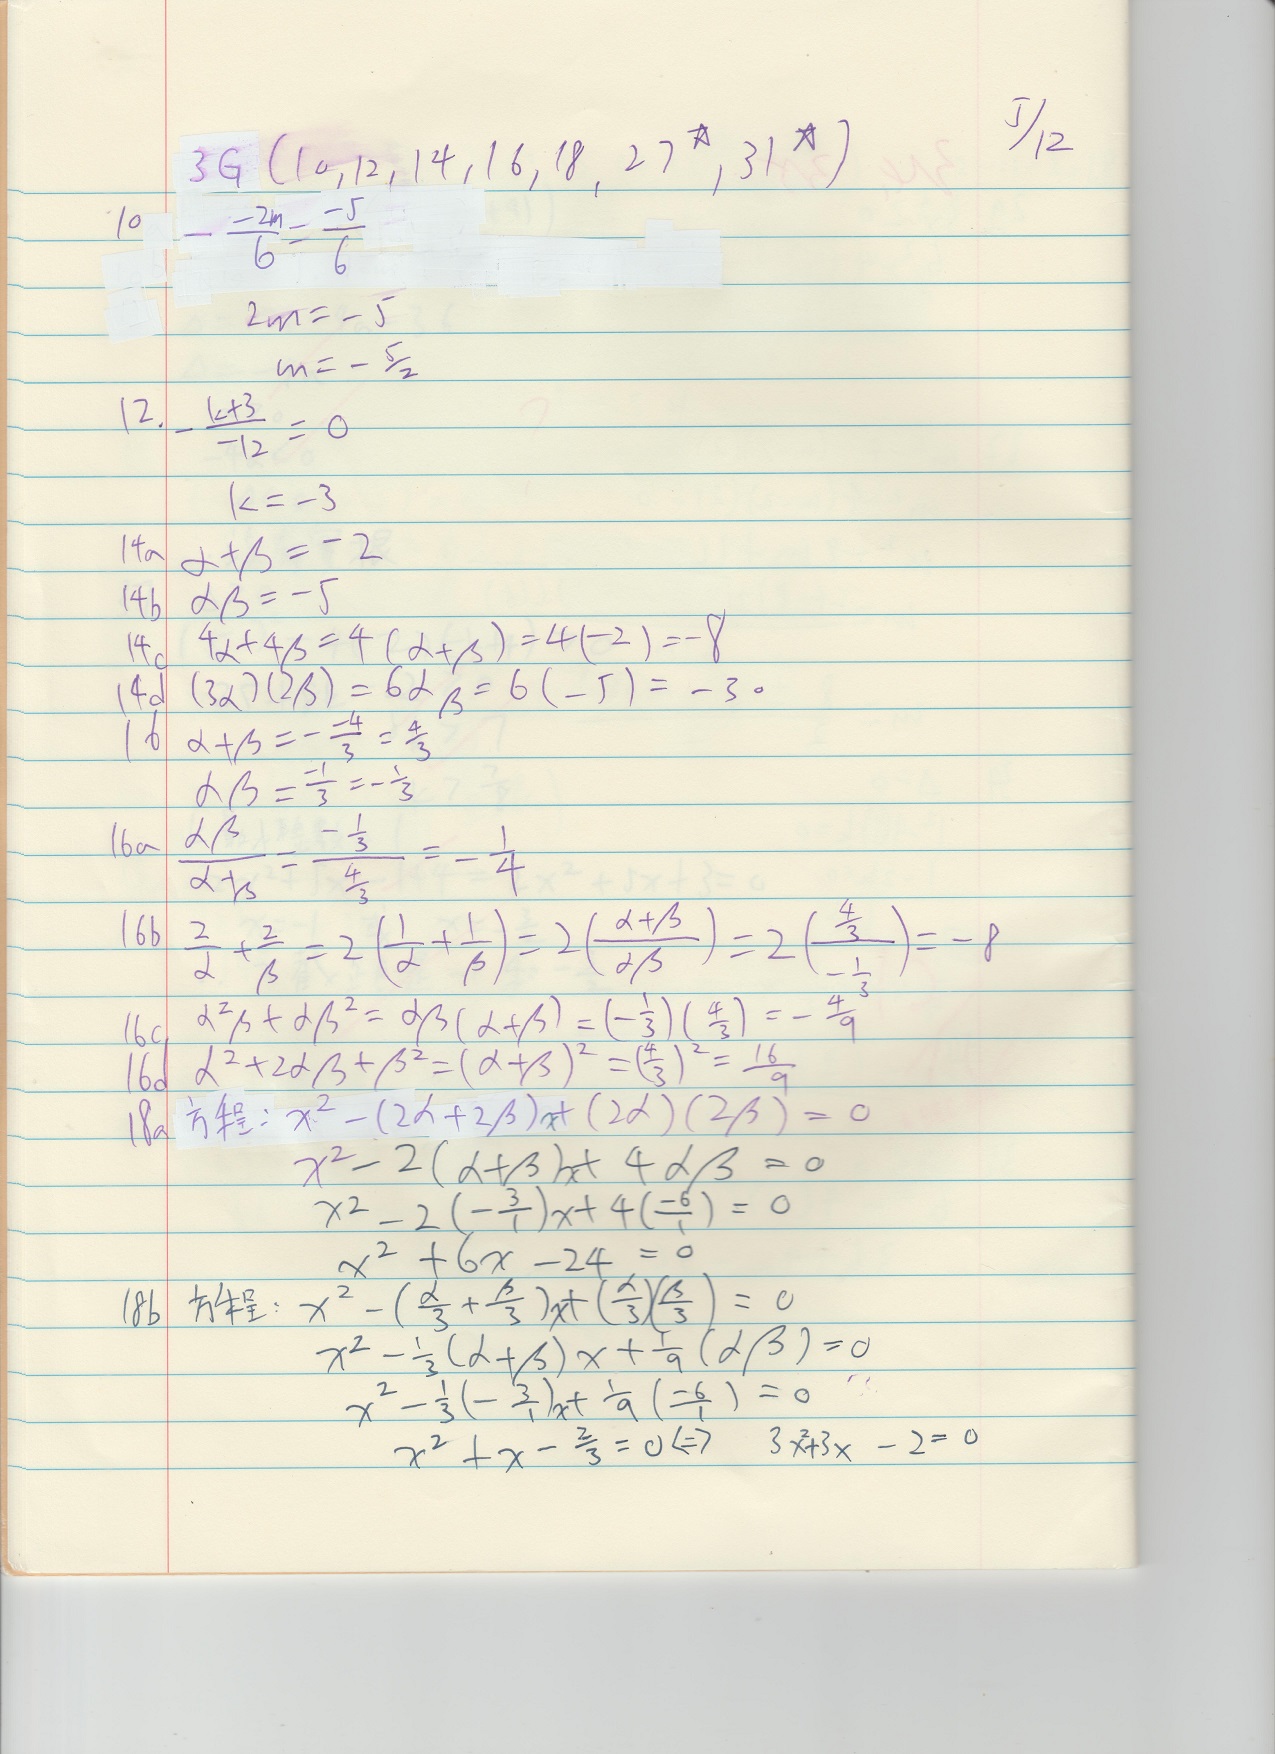 5/12
3G (10, 12, 14, 16, 18, 27☆, 31☆)
10 - \frac{-2m}{6} = \frac{-5}{6}
2m = -5
m = - 5/2
12. - \frac{k+3}{-12} = 0
k = -3
14a α+β = -2
14b αβ = -5
14c 4α+4β = 4(α+β) = 4(-2) = -8
14d (3α)(2β) = 6αβ = 6(-5) = -30
16 α+β = - \frac{-4}{3} = \frac{4}{3}
αβ = \frac{-1}{3} = - \frac{1}{3}
16a \frac{αβ}{α+β} = \frac{-\frac{1}{3}}{\frac{4}{3}} = - \frac{1}{4}
16b \frac{2}{α} + \frac{2}{β} = 2(\frac{1}{α} + \frac{1}{β}) = 2(\frac{α+β}{αβ}) = 2(\frac{\frac{4}{3}}{-\frac{1}{3}}) = -8
16c α²β + αβ² = αβ(α+β) = (-\frac{1}{3})(\frac{4}{3}) = - \frac{4}{9}
16d α² + 2αβ + β² = (α+β)² = (\frac{4}{3})² = \frac{16}{9}
18a 方程: x² - (2α+2β)x + (2α)(2β) = 0
x² - 2(α+β)x + 4αβ = 0
x² - 2(-\frac{3}{1})x + 4(\frac{-6}{1}) = 0
x² + 6x - 24 = 0
18b 方程: x² - (\frac{α}{3} + \frac{β}{3})x + (\frac{α}{3})(\frac{β}{3}) = 0
x² - \frac{1}{3}(α+β)x + \frac{1}{9}(αβ) = 0
x² - \frac{1}{3}(-\frac{3}{1})x + \frac{1}{9}(\frac{-6}{1}) = 0
x² + x - \frac{2}{3} = 0 <=> 3x²+3x - 2 = 0